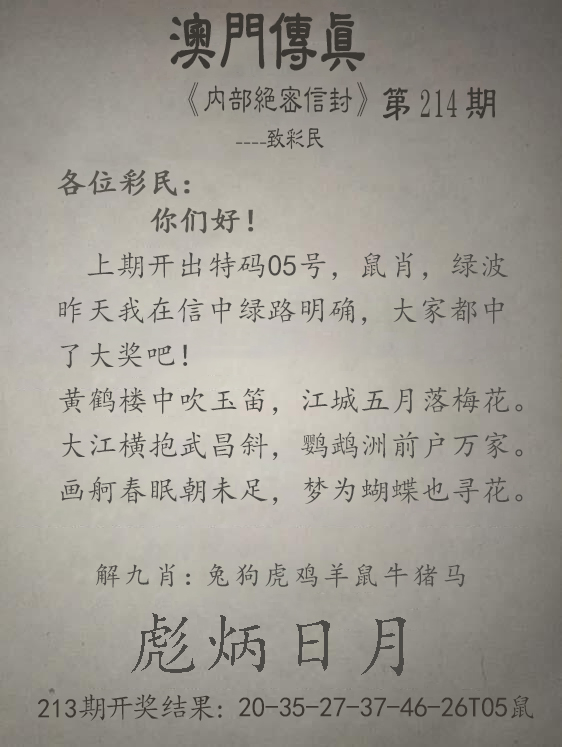 澳門傳真
《内部絕密信封》第214期
----致彩民
各位彩民：
你们好！
上期开出特码05号，鼠肖，绿波
昨天我在信中绿路明确，大家都中
了大奖吧！
黄鹤楼中吹玉笛，江城五月落梅花。
大江横抱武昌斜，鹦鹉洲前户万家。
画舸春眠朝未足，梦为蝴蝶也寻花。
解九肖：兔狗虎鸡羊鼠牛猪马
彪炳日月
213期开奖结果：20-35-27-37-46-26T05鼠